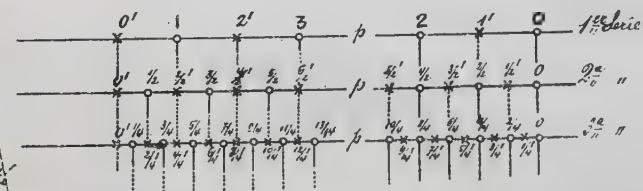 0' 1 2' 3 p 2 1' 0 1ª Serie
0' 1/2 2/2' 3/2 4/2' 5/2 6/2' p 5/2' 4/2 3/2' 2/2 1/2' 0 2ª "
0' 1/4 3/4 5/4 7/4 9/4 11/4 13/4 p 10/4 8/4 6/4 4/4 2/4 0 3ª "
2/4' 4/4' 6/4' 8/4' 10/4' 12/4' 9/4' 7/4' 5/4' 3/4' 1/4'